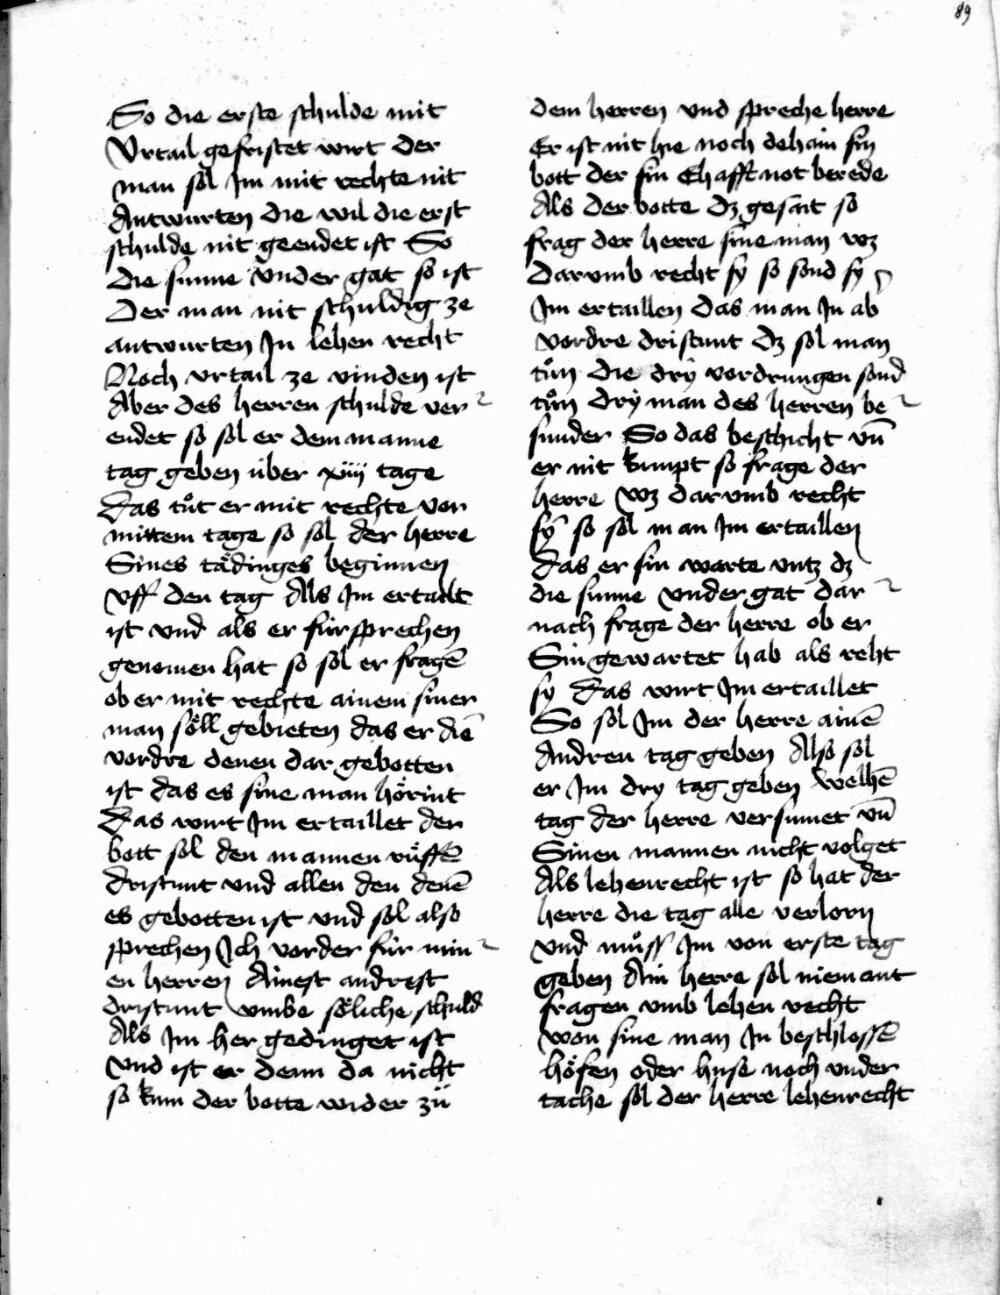 89
So die erste schulde mit
Vrtail gefristet wirt der
man sol Jm mit rechte nit
Antwurten die wil die erst
schulde nit geendet ist So
die sunne vnder gat so ist
Der man nit schuldig ze
antwurten Jn lehen recht
Noch vrtail ze vinden ist
Aber des herren schulde ver
endet so sol er dem manne
tag geben über xiiij tage
Das tůt er mit rechte vor
mittem tage so sol der herre
Sines tädinges beginnen
vff den tag Als Jm ertailt
ist vnd als er fürsprechen
genomen hat so sol er fragē
ob er mit rechte ainem siner
man söll gebieten das er die
vordre denen dar gebotten
ist das es sine man hörint
Das wirt Jm ertaillet der
bott sol den mannen rüffē
dristunt vnd allen den denē
es gebotten ist vnd sol also
sprechen Jch vorder für min
en herren Ainest andrest
dristunt vmbe söliche schuld
Als Jm her gedinget ist
vnd ist er denn da nicht
so kum der botte wider zü
dem herren vnd spreche herre
Er ist nit hie noch dehain sin
bott der sin Ehafft not berede
Als der botte dz gesait so
frag der herre sine man wz
darumb recht sy so sond sy
Jm ertaillen das man Jn ab
vordre dristunt dz sol man
tůn die dry vordrungen sond
tůn dry man des herren be
sunder So das beschicht vn̄
er nit kumpt so frage der
herre wz darumb recht
sy so sol man Jm ertaillen
Das er sin warte vntz dz
die sunne vnder gat dar
nach frage der herre ob er
Sin gewartet hab als reht
sy Das wirt Jm ertaillet
So sol Jm der herre ainē
Andren tag geben Also sol
er Jm dry tag geben welhē
tag der herre versumet vn̄
Sinen mannen nicht volget
Als lehenrecht ist so hat der
herre die tag alle verlorn
vnd můss Jm von erste tag
geben Ain herre sol niemant
fragen vmb lehen recht
won sine man Jn beschlossē
höfen oder huse noch vnder
tache sol der herre lehenrecht